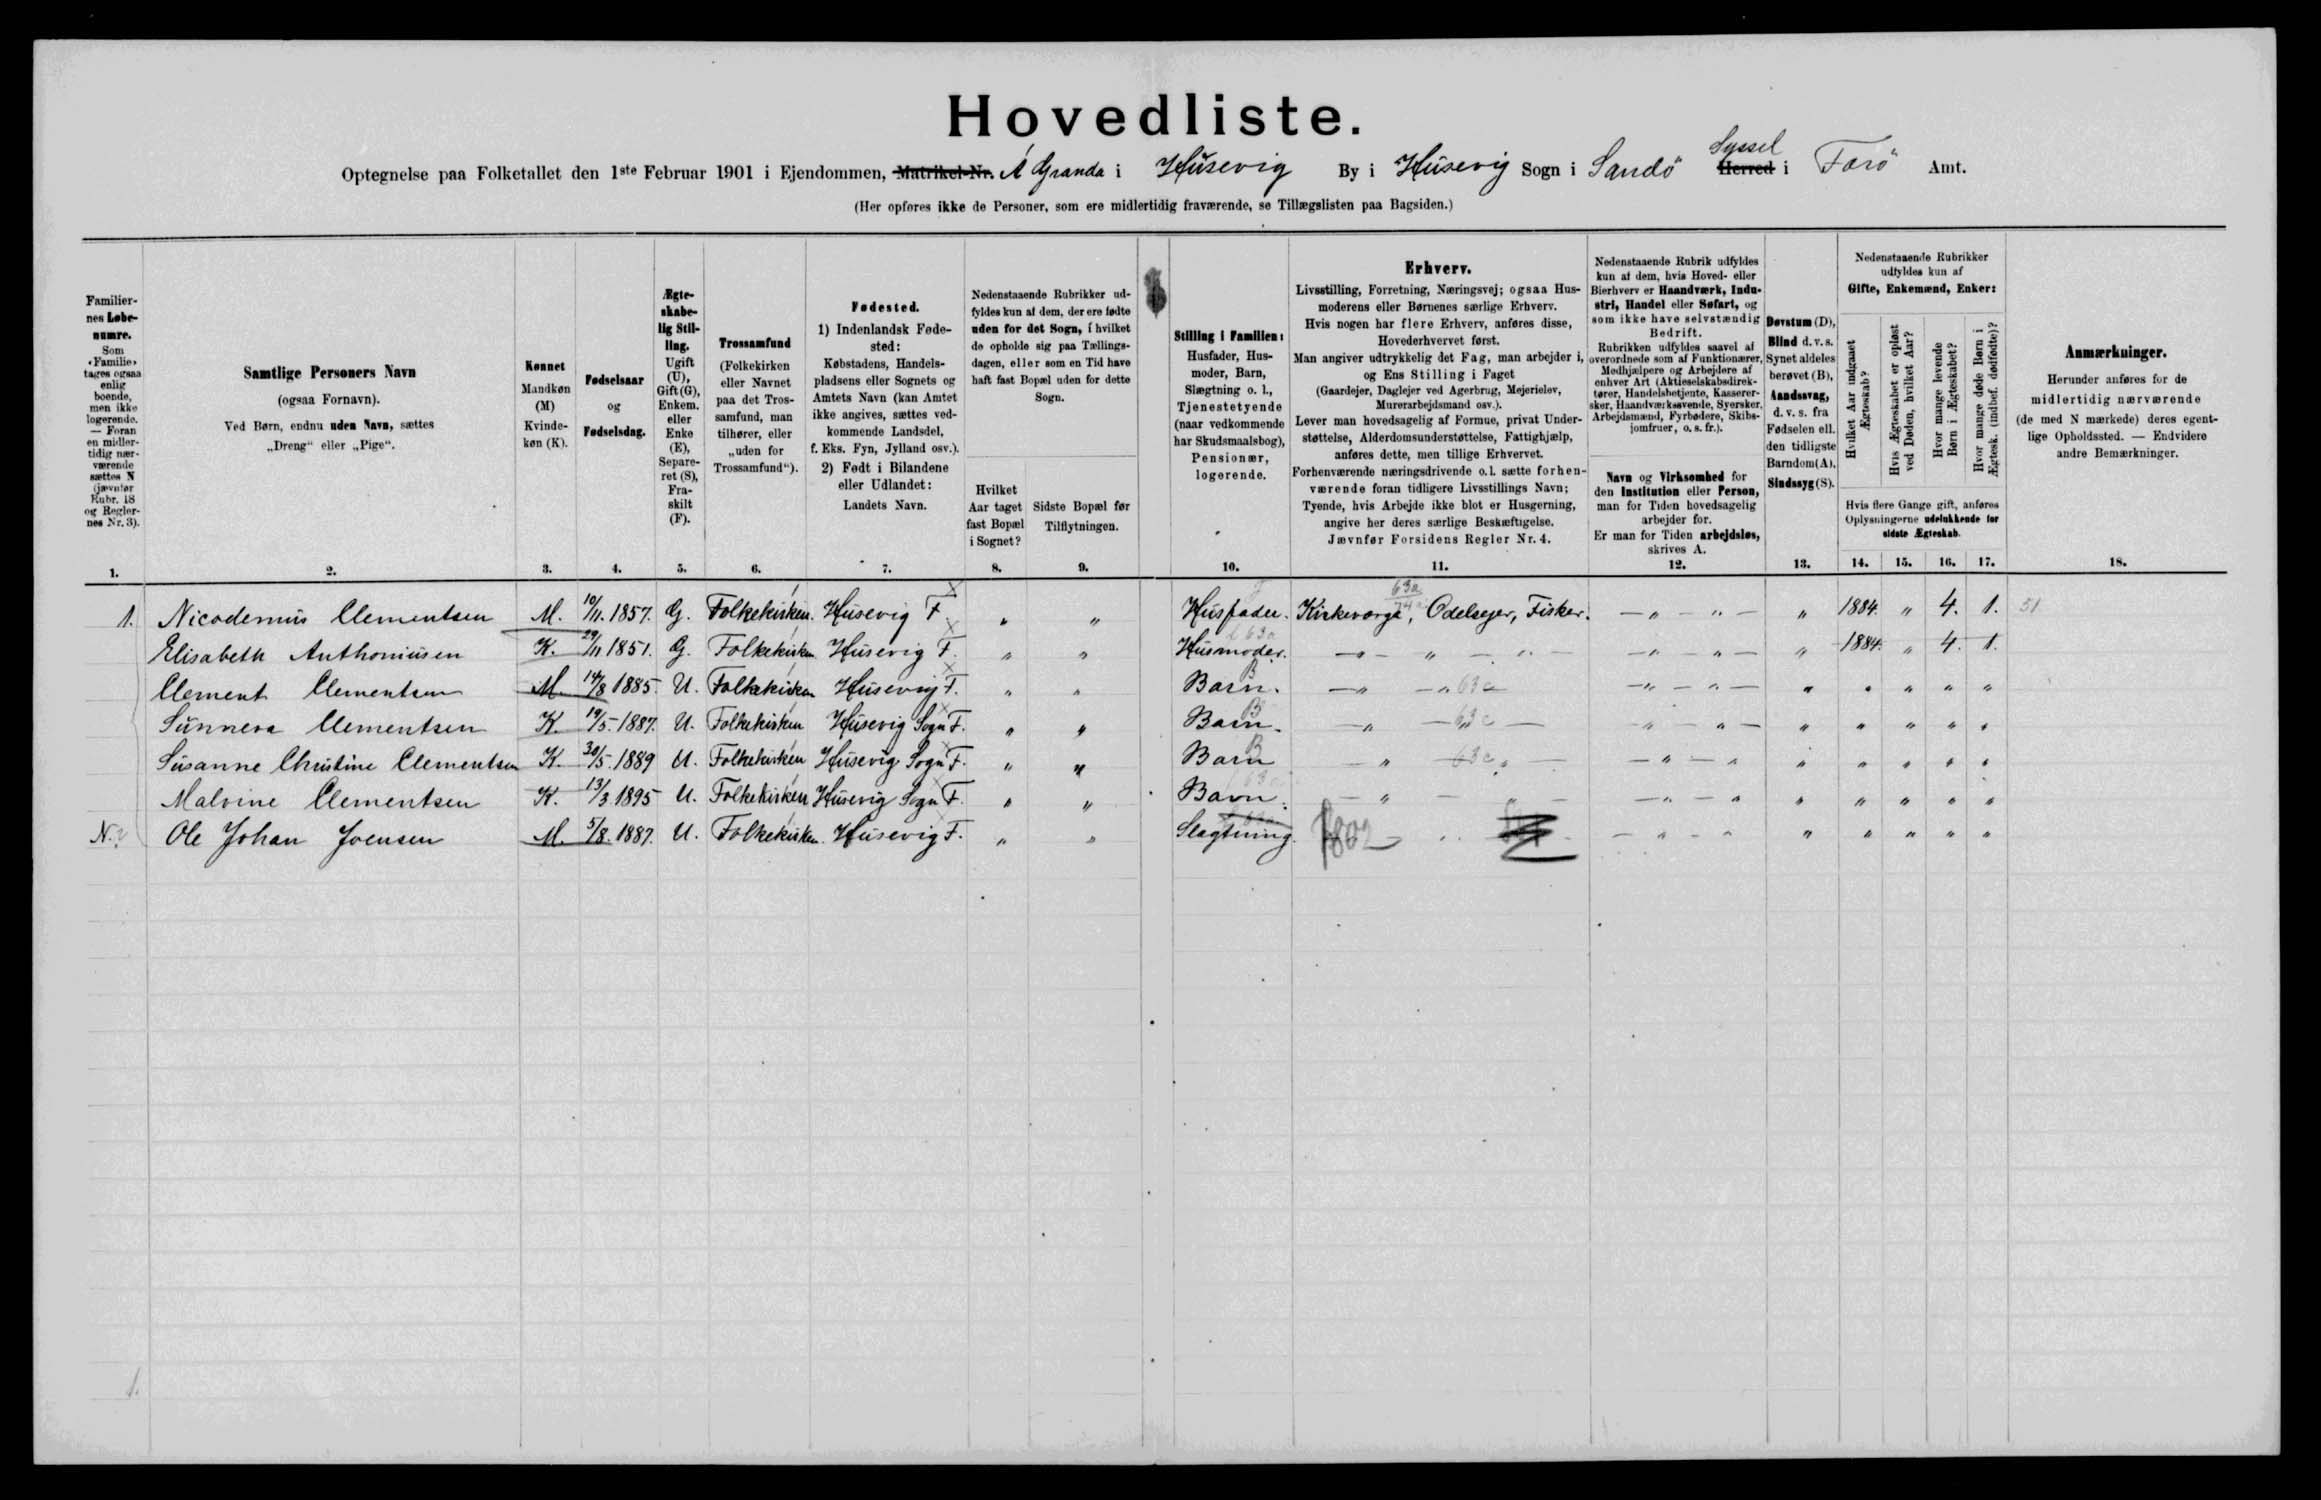 Hovedliste.
Optegnelse paa Folketallet den 1ste Februar 1901 i Ejendommen, Matrikel-Nr. Á Granda i Húsevig By i Húsevig Sogn i Sandö Herred Syssel i Færö Amt.
(Her opføres ikke de Personer, som ere midlertidig fraværende, se Tillægslisten paa Bagsiden.)
Familier-
nes Løbe-
numre.
Som
«Familie»
tages ogsaa
enlig
boende,
men ikke
logerende.
— Foran
en midler-
tidig nær-
værende
sættes N
(jævnfør
Rubr. 18
og Regler-
nes Nr. 3).
1.
Samtlige Personers Navn
(ogsaa Fornavn).
Ved Børn, endnu uden Navn, sættes
„Dreng“ eller „Pige“.
2.
Kønnet
Mandkøn
(M)
Kvinde-
køn (K).
3.
Fødselsaar
og
Fødselsdag.
4.
Ægte-
skabe-
lig Stil-
ling.
Ugift
(U),
Gift (G),
Enkem.
eller
Enke
(E),
Separe-
ret (S),
Fra-
skilt
(F).
5.
Trossamfund
(Folkekirken
eller Navnet
paa det Tros-
samfund, man
tilhører, eller
„uden for
Trossamfund“).
6.
Fødested.
1) Indenlandsk Føde-
sted:
Købstadens, Handels-
pladsens eller Sognets og
Amtets Navn (kan Amtet
ikke angives, sættes ved-
kommende Landsdel,
f. Eks. Fyn, Jylland osv.).
2) Født i Bilandene
eller Udlandet:
Landets Navn.
7.
Nedenstaaende Rubrikker ud-
fyldes kun af dem, der ere fødte
uden for det Sogn, i hvilket
de opholde sig paa Tællings-
dagen, eller som en Tid have
haft fast Bopæl uden for dette
Sogn.
Hvilket
Aar taget
fast Bopæl
i Sognet?
8.
Sidste Bopæl før
Tilflytningen.
9.
Stilling i Familien:
Husfader, Hus-
moder, Barn,
Slægtning o. l.,
Tjenestetyende
(naar vedkommende
har Skudsmaalsbog),
Pensionær,
logerende.
10.
Erhverv.
Livsstilling, Forretning, Næringsvej; ogsaa Hus-
moderens eller Børnenes særlige Erhverv.
Hvis nogen har flere Erhverv, anføres disse,
Hovederhvervet først.
Man angiver udtrykkelig det Fag, man arbejder i,
og Ens Stilling i Faget
(Gaardejer, Daglejer ved Agerbrug, Mejerielev,
Murerarbejdsmand osv.).
Lever man hovedsagelig af Formue, privat Under-
støttelse, Alderdomsunderstøttelse, Fattighjælp,
anføres dette, men tillige Erhvervet.
Forhenværende næringsdrivende o. l. sætte forhen-
værende foran tidligere Livsstillings Navn;
Tyende, hvis Arbejde ikke blot er Husgerning,
angive her deres særlige Beskæftigelse.
Jævnfør Forsidens Regler Nr. 4.
11.
Nedenstaaende Rubrik udfyldes
kun af dem, hvis Hoved- eller
Bierhverv er Haandværk, Indu-
stri, Handel eller Søfart, og
som ikke have selvstændig
Bedrift.
Rubrikken udfyldes saavel af
overordnede som af Funktionærer,
Medhjælpere og Arbejdere af
enhver Art (Aktieselskabsdirek-
tører, Handelsbetjente, Kasserer-
sker, Haandværkssvende, Syersker,
Arbejdsmænd, Fyrbødere, Skibs-
jomfruer, o. s. fr.).
Navn og Virksomhed for
den Institution eller Person,
man for Tiden hovedsagelig
arbejder for.
Er man for Tiden arbejdsløs,
skrives A.
12.
Døvstum (D),
Blind d. v. s.
Synet aldeles
berøvet (B),
Aandssvag,
d. v. s. fra
Fødselen ell.
den tidligste
Barndom (A),
Sindssyg (S).
13.
Nedenstaaende Rubrikker
udfyldes kun af
Gifte, Enkemænd, Enker:
Hvilket Aar indgaaet
Ægteskab?
Hvis Ægteskabet er opløst
ved Døden, hvilket Aar?
Hvor mange levende
Børn i Ægteskabet?
Hvor mange døde Børn i
Ægtesk. (indbef. dødfødte)?
Hvis flere Gange gift, anføres
Oplysningerne udelukkende for
sidste Ægteskab.
14. 15. 16. 17.
Anmærkninger.
Herunder anføres for de
midlertidig nærværende
(de med N mærkede) deres egent-
lige Opholdssted. — Endvidere
andre Bemærkninger.
18.
1. Nicodemús Clementsen M. 10/11. 1857. G. Folkekirken. Húsevig F. " " Húsfader. Kirkeværge, Odelsejer, Fisker. 63a — " — " — " 1884. " 4. 1. 51
Elisabeth Anthoniúsen K. 29/11 1851. G. Folkekirken Húsevig F. " " Húsmoder. 63a — " — " — " — — " — " — " 1884. " 4. 1.
Clement Clementsen M. 14/8 1885. U. Folkekirken Húsevig F. " " Barn. B — " — " 63a — " — " — " " " " "
Súnneva Clementsen K. 19/5. 1887. U. Folkekirken Húsevig Sogn F. " " Barn. B — " — " 63c — " — " — " " " " "
Súsanne Christine Clementsen K. 30/5. 1889 U. Folkekirken Húsevig Sogn F. " " Barn B — " — 63c " — " — " " " " " "
Malvine Clementsen K. 13/3 1895 U. Folkekirken Húsevig Sogn F. " " Barn. 63a — " — " — " — " " " " " "
N. 2 Ole Johan Joensen M. 5/8. 1887. U. Folkekirken. Húsevig F. " " Slægtning. — " — " " " " " "
1.